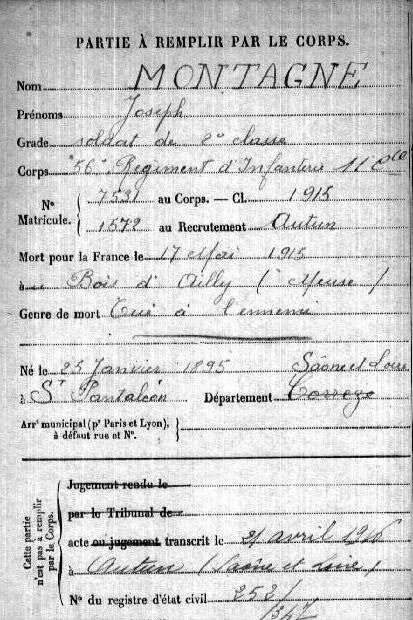 PARTIE À REMPLIR PAR LE CORPS.
Nom MONTAGNE
Prénoms Joseph
Grade soldat de 2e classe
Corps 56e Régiment d'Infanterie 11e Cie
N° Matricule. { 7531 au Corps. — Cl. 1915
1572 au Recrutement Autun
Mort pour la France le 17 Mai 1915
à Bois d'Ailly (Meuse)
Genre de mort Tué à l'ennemi
Né le 23 Janvier 1895 Saône et Loire
à St Pantaléon Département Corrèze
Arrt municipal (pr Paris et Lyon), à défaut rue et N°.
Cette partie n'est pas à remplir par le Corps.
Jugement rendu le
par le Tribunal de
acte ou jugement transcrit le 21 avril 1916
à Autun (Saône et Loire)
N° du registre d'état civil 252/
347